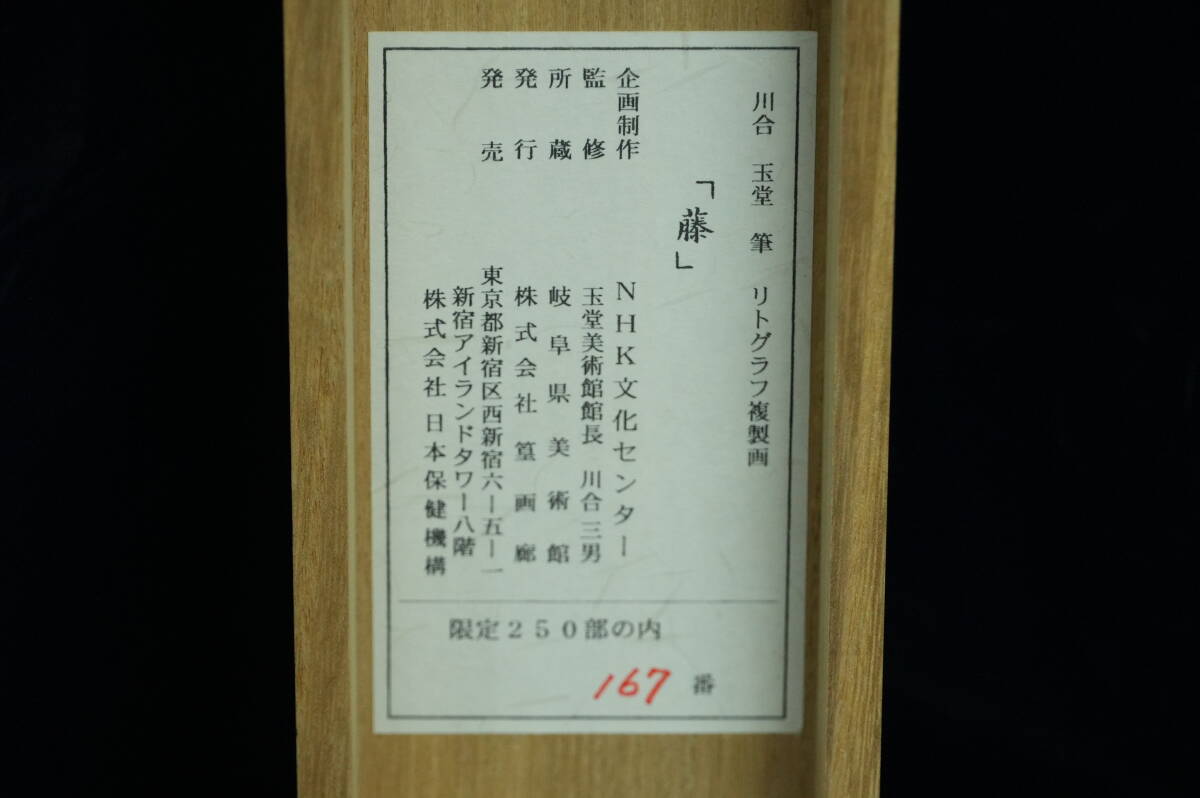 川合 玉堂 筆 リトグラフ複製画
「藤」
企画制作 NHK文化センター
監修 玉堂美術館館長 川合三男
所蔵 岐阜県美術館
発行 株式会社篁画廊
発売 東京都新宿区西新宿六ー五ー一
新宿アイランドタワー八階
株式会社日本保健機構
限定250部の内
167 番